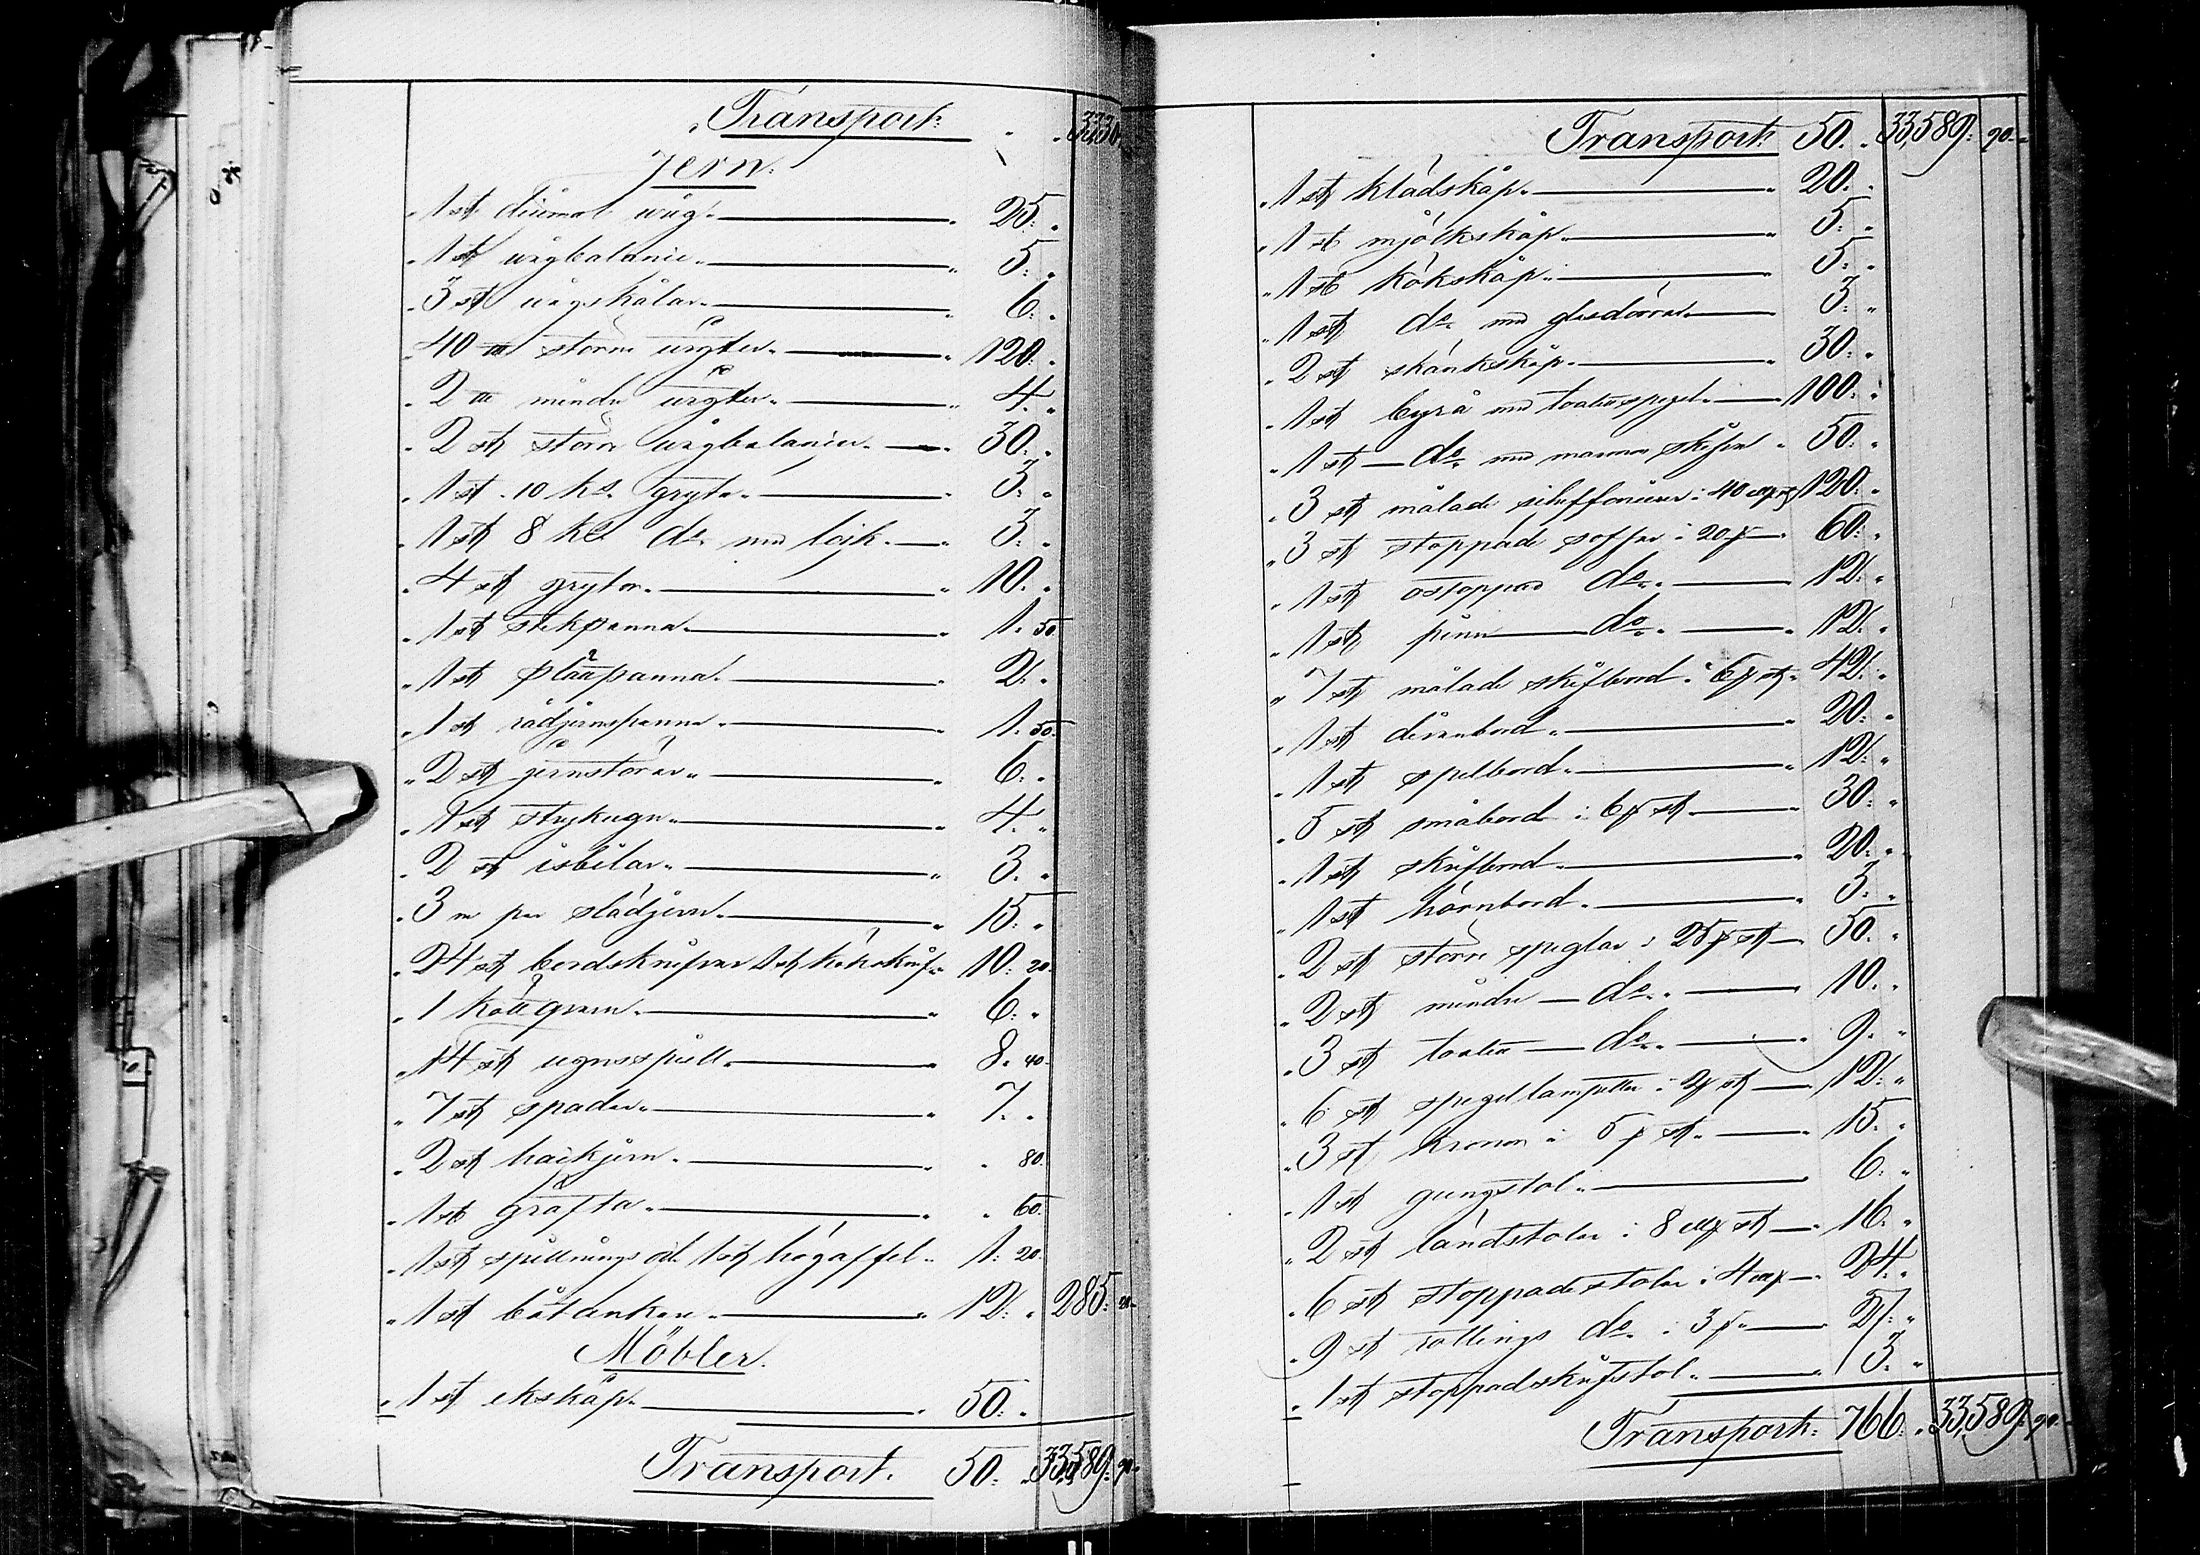 Transport. " " 33,30
Jern.
" 1 st decimal våg. " 25: "
" 1 st vågbalanie. " 5: "
" 3 st vågskålar. " 6: "
" 40 ttt större vigter. " 120: "
" 2 ttt mindre vigter. " 4: "
" 2 st större vågbalanier. " 30: "
" 1 st 10 k:s gryta. " 3: "
" 1 st 8 k:s d:o med lock. " 3: "
" 4 st grytor. " 10: "
" 1 st stekpanna. " 1: 50
" 1 st plåtpanna. " 2: "
" 1 st rådjernspanna. " 1: 50
" 2 st jernstörar. " 6: "
" 1 st strykugn. " 4: "
" 2 st isbilar. " 3: "
" 3 par slädjern. " 15: "
" 24 st bordsknifvar 1 st köksknif. " 10: 20
" 1 köttqvarn. " 6: "
" 14 st ugnsspjell. " 8: 40
" 7 st spadar. " 7: "
" 2 st hackjern. " " 80
" 1 st gräfta. " " 60
" 1 st spillnings och 1 st högaffel. " 1: 20
" 1 st båtankare. " 12: " 285: 20
Möbler.
" 1 st ekskåp. " 50: "
Transport. 50: " 33,589: 90
Transport 50: " 33,589: 90
" 1 st klädskåp. " 20: "
" 1 st mjölkskåp. " 5: "
" 1 st kökskåp. " 5: "
" 1 st d:o med glasdörrar. 3: "
" 2 st skänkskåp. " 30: "
" 1 st byrå med toalettspegel. 100: "
" 1 st d:o med marmor skifva " 50: "
" 3 st målade schiffonierer i 40 120: "
" 3 st stoppade soffor i 20 60: "
" 1 st ostoppad d:o. " 12: "
" 1 st pinn d:o. " 12: "
" 7 st målade skifbord i 6 st. 42: "
" 1 st divanbord " 20: "
" 1 st spelbord. " 12: "
" 5 st småbord i 6 st. " 30: "
" 1 st skrifbord. " 20: "
" 1 st hörnbord. " 3: "
" 2 st större speglar i 25 st 50: "
" 2 st mindre d:o. " 10: "
" 3 st toalett d:o. " 9: "
" 6 st spegellampetter i 2 st 12: "
" 3 st kronor i 5 st. " 15: "
" 1 st gungstol. 6: "
" 2 st ländstolar i 8 st 16: "
" 6 st stoppade stolar i 4 24: "
" 9 st rottings d:o. i 3 27: "
" 1 st stoppad skrifstol. " 3: "
Transport: 766: " 33,589: 90